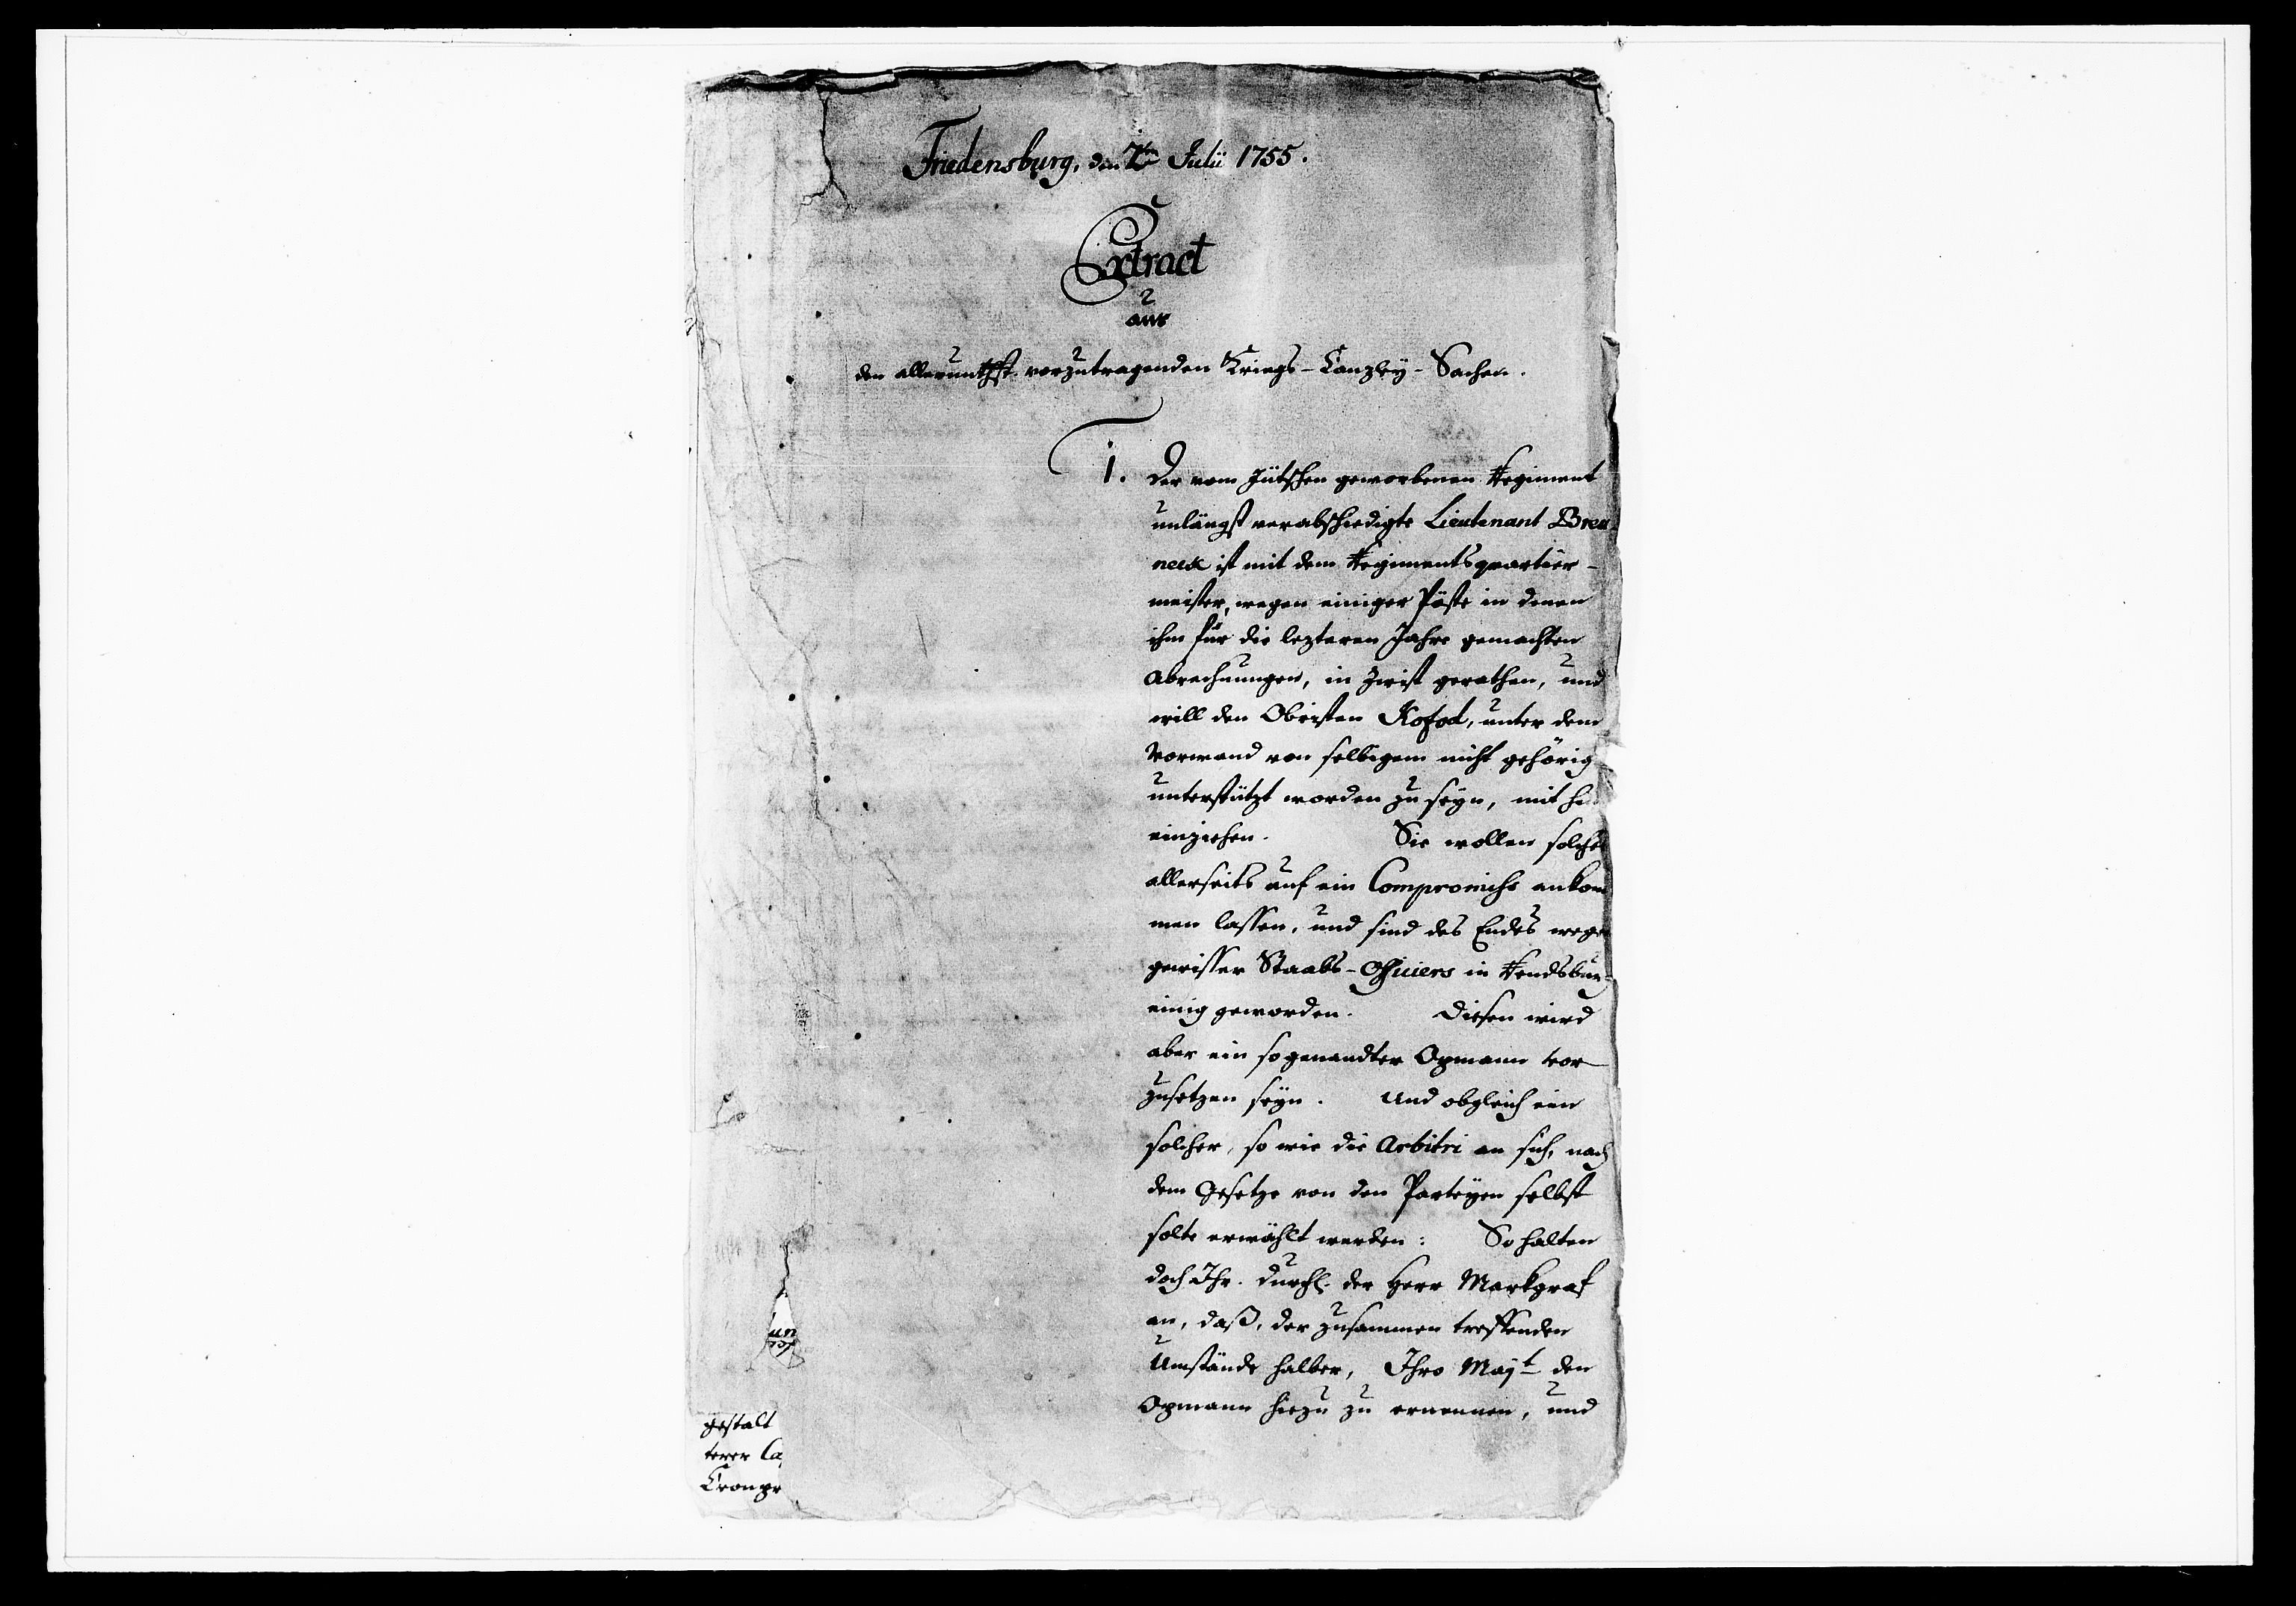 Friedensburg, den 7ten Julii 1755.
Extract
aus
den allerunthst. vorzutragenden Kriegs-Canzley-Sachen.
1. Der vom Jütschen geworbenen Regiment
unlängst verabschiedigte Lieutenant Breu-
neck ist mit dem Regimentsquartier-
meister, wegen einiger Pöste in denen
ihm für die lezteren Jahre gemachten
Abrechnungen, in Zwist gerathen, und
will den Obristen Kofod, unter dem
Vorwand von selbigem nicht gehörig
unterstützt worden zu seyn, mit
einziehen. Sie wollen solches
allerseits auf ein Compromiss ankom
men lassen, und sind des Endes wegen
gewisser Staabs-Officiers in Rendsbur-
einig geworden. Diesen wird
aber ein sogenandter Opmann vor
zusetzen seyn. Und obgleich ein
solcher, so wie die Arbitri an sich, nach
dem Gesetze von den Parteyen selbst
solte erwählt werden: So halten
doch Ihr. Durchl. der Herr Markgraf
an, daß, der zusammen treffenden
Umstände halber, Ihro Majt den
Opmann hiezu zu ernennen, und
un
gestalt
terer Ca
Cronpr